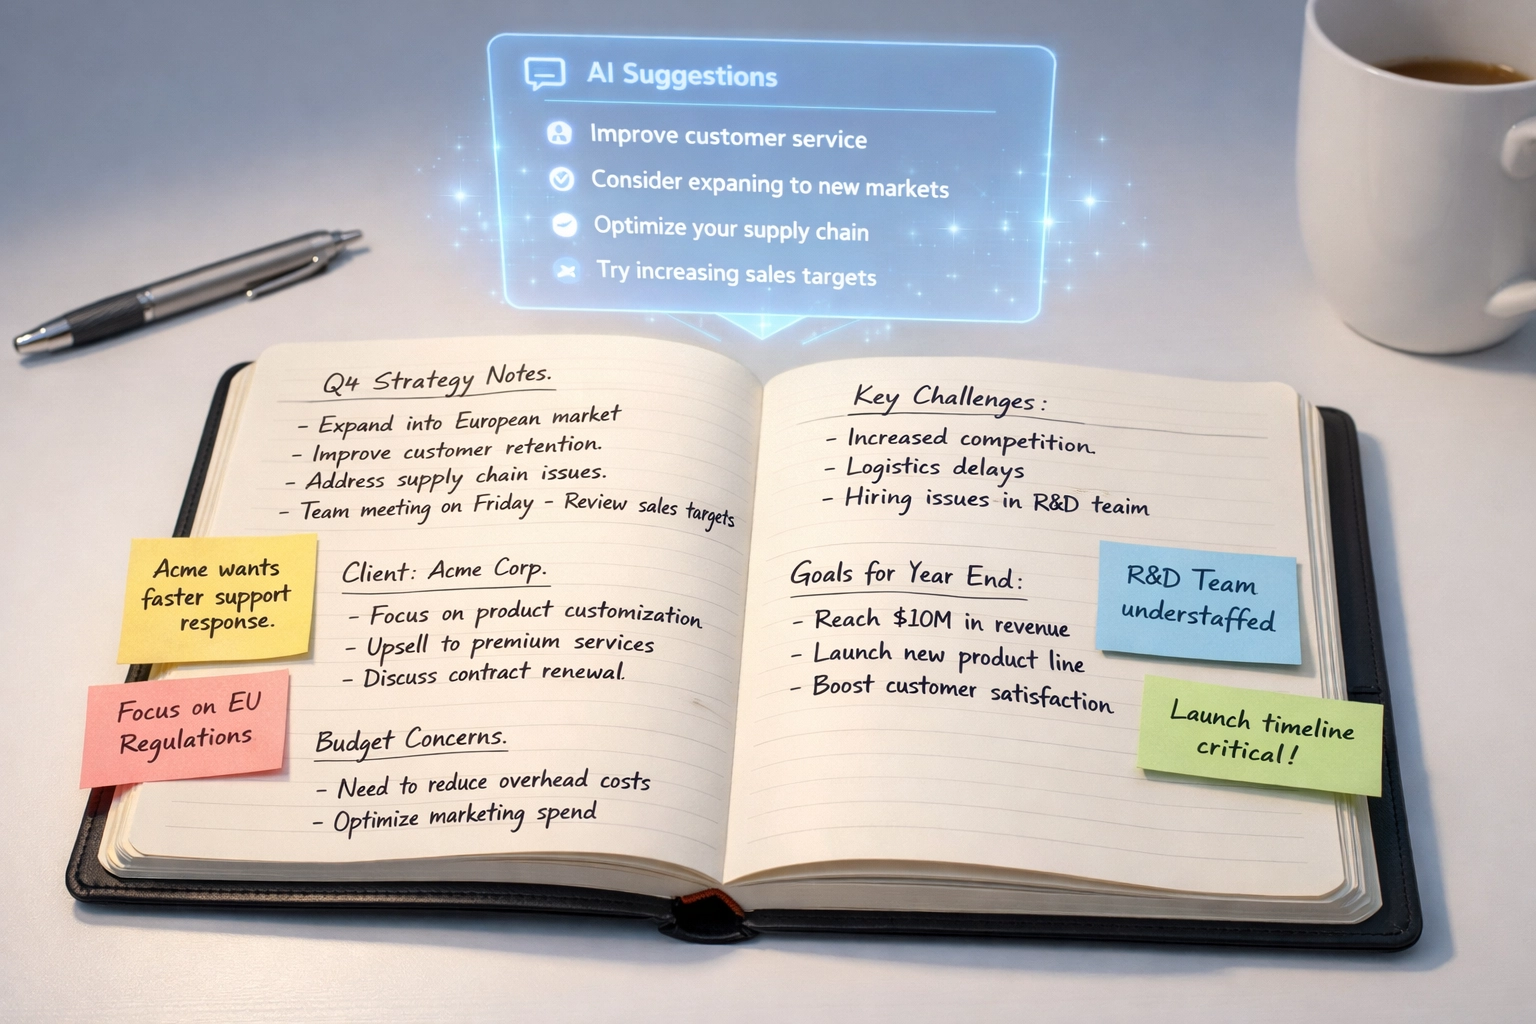 AI Suggestions
Improve customer service
Consider expaning to new markets
Optimize your supply chain
Try increasing sales targets
Q4 Strategy Notes.
- Expand into European market
- Improve customer retention.
- Address supply chain issues.
- Team meeting on Friday - Review sales targets
Acme wants
faster support
response.
Client: Acme Corp.
- Focus on product customization
- Upsell to premium services
- Discuss contract renewal.
Focus on EU
Regulations
Budget Concerns.
- Need to reduce overhead costs
- Optimize marketing spend
Key Challenges:
- Increased competition.
- Logistics delays
- Hiring issues in R&D teaim
Goals for Year End:
- Reach $10M in revenue
- Launch new product line
- Boost customer satisfaction
R&D Team
understaffed
Launch timeline
critical!